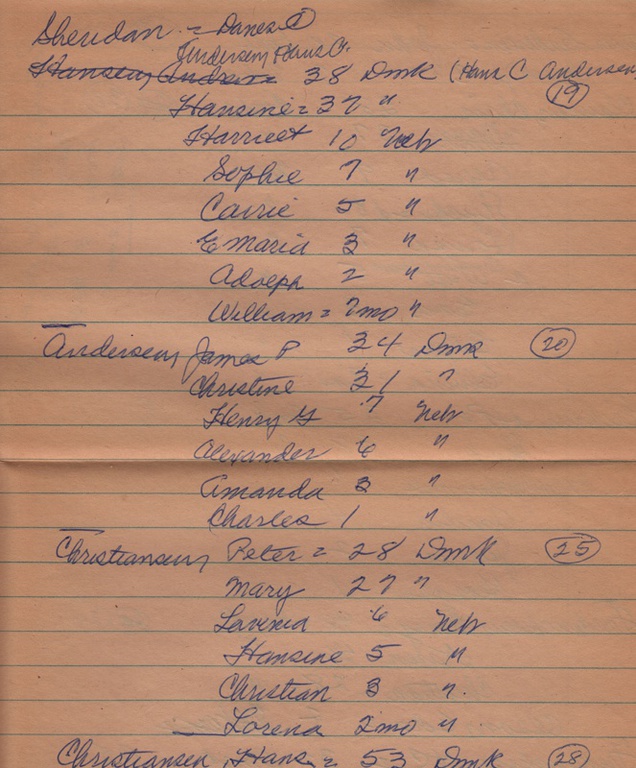 Sheridan = Danes
Andersen, Hans C.
Hansen, Andrew 38 Dmk (Hans C Andersen)
Hansine = 37 " (19)
Harriet 10 Neb
Sophie 7 "
Carrie 5 "
E Maria 3 "
Adolph 2 "
William = 7 mo "
Andersen, James P 34 Dmk (20)
Christine 31 "
Henry G 7 Neb
Alexander 6 "
Amanda 3 "
Charles 1 "
Christiansen, Peter = 28 Dmk (25)
Mary 27 "
Lavinia 6 Neb
Hansine 5 "
Christian 3 "
Lorena 2 mo "
Christiansen, Hans = 53 Dmk (28)